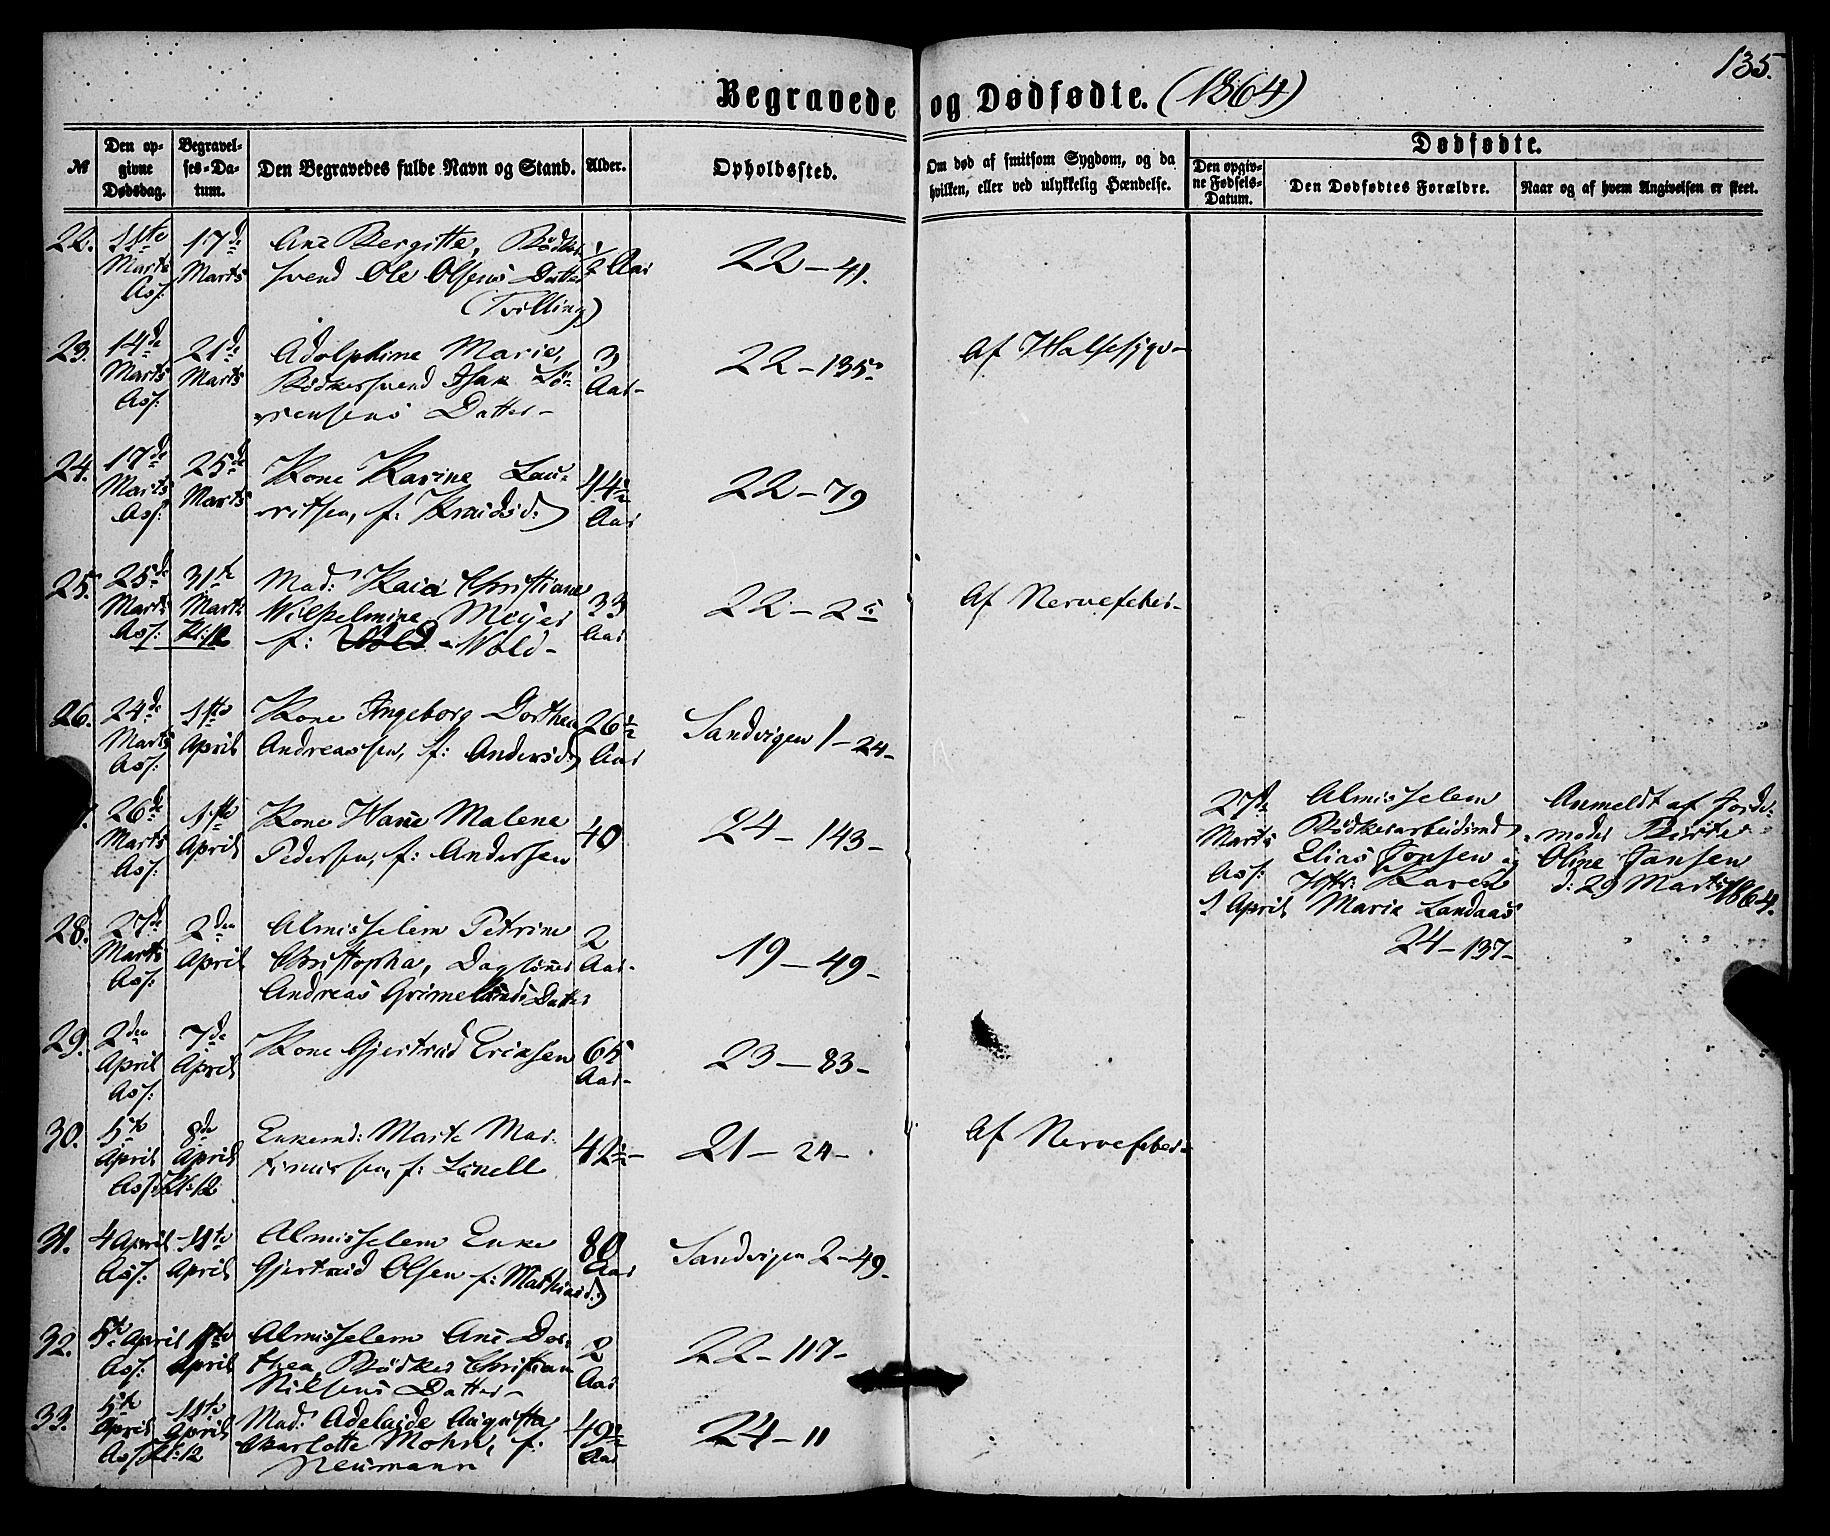 135.
Begravede og Dødfødte. (1864)
№
Den opgivne Dødsdag.
Begravelses-Datum.
Den Begravedes fulde Navn og Stand.
Alder.
Opholdssted.
Om død af smitsom Sygdom, og da hvilken, eller ved ulykkelig Hændelse.
Dødfødte.
Den opgivne Fødsels-Datum.
Den Dødfødtes Forældre.
Naar og af hvem Angivelsen er skeet.
22. 11te Marts Ass: 17de Marts
Ane Bergitte, Bødker
svend Ole Olsens Datter
(Tvilling)
½ Aar
22 – 41.
23. 14de Marts Ass: 21de Marts
Adolphine Marie,
Bødkersvend Isak Sö-
rensens Datter –
3 Aar –
22 – 135
Af Halssyge –
24. 17de Marts Ass: 25de Marts
Kone Karine Lau-
ritsen, f: Knudsd:
44½ Aar
22 – 79
25. 25de Marts Ass: 31te Marts Kl: 12
Mad: Kaia Christiane
Wilhelmine Meyer
f: Wold –
33 Aar
22 – 2
Af Nervefeber –
26. 24de Marts Ass: 1ste April
Kone Ingeborg Dorthea
Andreassen, f: Andersd:
26½ Aar
Sandvigen 1 – 24 –
26de Marts Ass: 1ste April
Kone Hane Malene
Pedersen, f: Andersen
40
24 – 143 –
27de Marts Ass: 1 April
Almisselem
Bødkerarbeidsmd
Elias Jonsen og
Hstr: Karen
Marie Landaas
24 – 137 –
Anmeldt af Jorde-
moder Birte
Oline Jansen
d: 29 Marts 1864.
28. 27de Marts Ass: 2den April
Almisselem Petrine
Christopha, Daglöner
Andreas Grimelunds Datter
2 Aar –
19 – 49 –
29. 2den April Ass: 7de April
Kone Gjertrud Eriksen
65 Aar –
23 – 83 –
30. 5te April Ass: 8de April Kl: 12
Enkemd: Marte Mar-
tinussen, f: Linell
42½ –
21 – 24 –
Af Nervefeber –
31. 4 April Ass: 11te April
Almisselem Enke
Gjertrud Olsen f: Mathiasd:
80 Aar
Sandvigen 2 – 49 –
32. 5te April Ass: 11te April
Almisselem Ane Dor-
thea, Bødker Christian
Nilsens Datter –
2 Aar
22 – 117 –
33. 5te April Ass: 11te April Kl: 12
Mad: Adelaide Augusta
Charlotte Mohn, f:
Neumann
49½ Aar
24 – 11